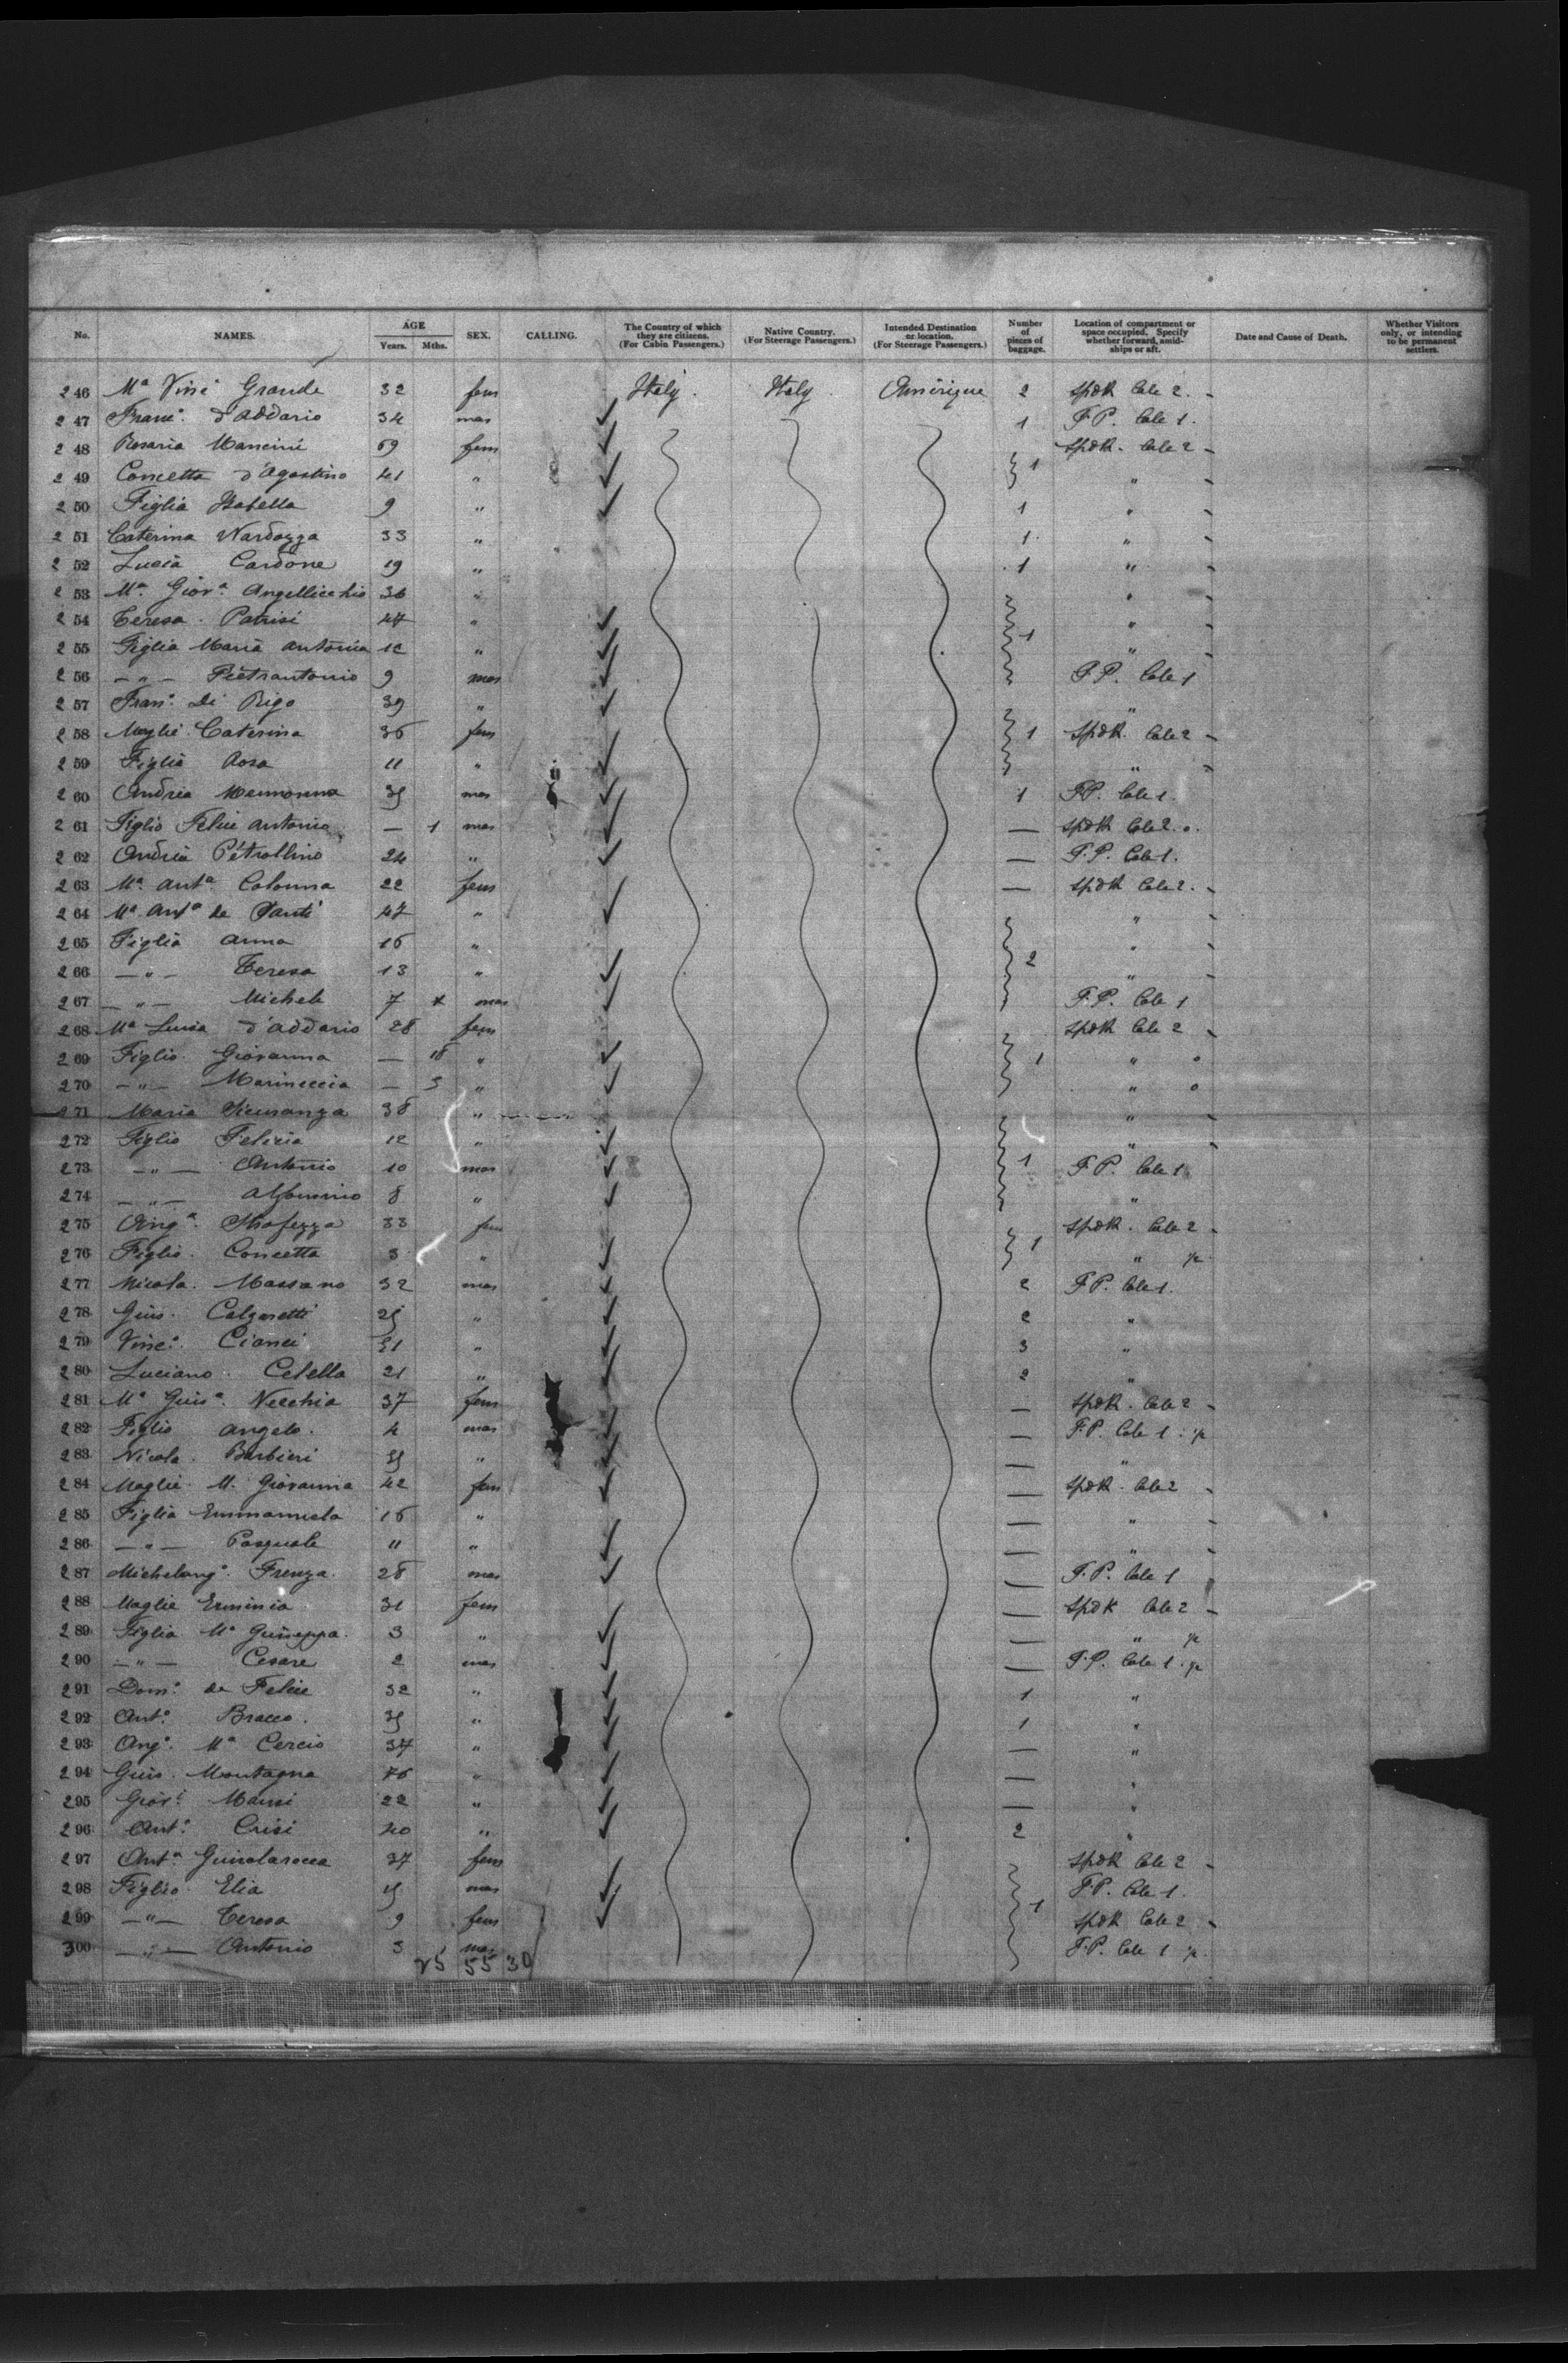 No. NAMES. AGE Years. Mths. SEX. CALLING. The Country of which they are citizens. (For Cabin Passengers.) Native Country. (For Steerage Passengers.) Intended Destination or location. (For Steerage Passengers.) Number of pieces of baggage. Location of compartment or space occupied. Specify whether forward, amidships or aft. Date and Cause of Death. Whether Visitors only, or intending to be permanent settlers.
246 Mª Vinsˢ Grande 32 fem Italy. Italy Amérique 2 SpdK Cale 2. -
247 Franº. d'Addario 34 mas 1 F.P. Cale 1.
248 Rosaria Mancini 69 fem SpdK. Cale 2 -
249 Concetta d'Agostino 41 " 1 " -
250 Figlia Isabella 9 " 1 " -
251 Caterina Nardozza 33 " 1. " -
252 Lucia Cardone 19 " 1 " -
253 Mª. Giovª. Angellicchio 36 " " -
254 Teresa Patrisi 47 " " -
255 Figlia Maria Antonia 12 " 1 " -
256 - " - Pietrantonio 9 mas F.P. Cale 1
257 Franº. Di Rigo 39 " "
258 Moglie Caterina 36 fem 1 SpdK. Cale 2 -
259 Figlia Rosa 11 " " -
260 Andrea 35 mas 1 F.P. Cale 1.
261 Figlio Felice Antonio — 1 mas — SpdK Cale 2. o.
262 Andrea Petrollino 24 " — F.P. Cale 1.
263 Mª. Antª. Colonna 22 fem — SpdK Cale 2. -
264 Mª. Antª de Santi 47 " " -
265 Figlia Anna 16 " " -
266 - " - Teresa 13 " 2 " -
267 - " - Michele 7 mas F.P. Cale 1
268 Mª Luisa d'Addario 28 fem SpdK Cale 2 -
269 Figlio Giovanna — 18 " 1 " o
270 - " - Marinuccia — 3 " " o
271 Maria Sicuranza 38 " " -
272 Figlio Felicia 12 " " -
273 - " - Antonio 10 mas 1 F.P. Cale 1
274 - " - Alfonsino 8 " "
275 Angª. Strafezza 33 fem SpdK. Cale 2 -
276 Figlio. Concetta 3 " 1 " ½
277 Nicola. Massano 32 mas 2 F.P. Cale 1.
278 Gius. Calzaretti 25 " 2 "
279 Vincº. Cianci 51 " 3 "
280 Luciano Celella 21 " 2 "
281 Mª Giusª. Necchia 37 fem — SpdK. Cale 2 -
282 Figlio Angelo. 4 mas — F.P. Cale 1. ½
283 Nicola. Barbieri 35 " — "
284 Moglie M. Giovanna 42 fem — SpdK. Cale 2 -
285 Figlia Emmanuela 16 " — " -
286 - " - Pasquale 11 " — " -
287 Michelangº. Frenza. 28 mas — F.P. Cale 1
288 Moglie Erminia 31 fem — SpdK Cale 2 -
289 Figlia Mª Giuseppa. 3 " — " ½
290 - " - Cesare 2 mas — F.P. Cale 1. ½
291 Domº. de Felice 32 " 1 "
292 Antº. Bracco. 35 " 1 "
293 Angº. Mª Cercio 37 " — "
294 Gius. Montagna 46 " — "
295 Giovⁱ. Mansi 22 " — "
296 Antº. Crisi 40 " 2 "
297 Antª. 37 fem SpdK Cale 2 -
298 Figlio. Elia 15 mas F.P. Cale 1.
299 - " - Teresa 9 fem 1 SpdK Cale 2 -
300 - " - Antonio 3 mas F.P. Cale 1 ½.
25 55 30